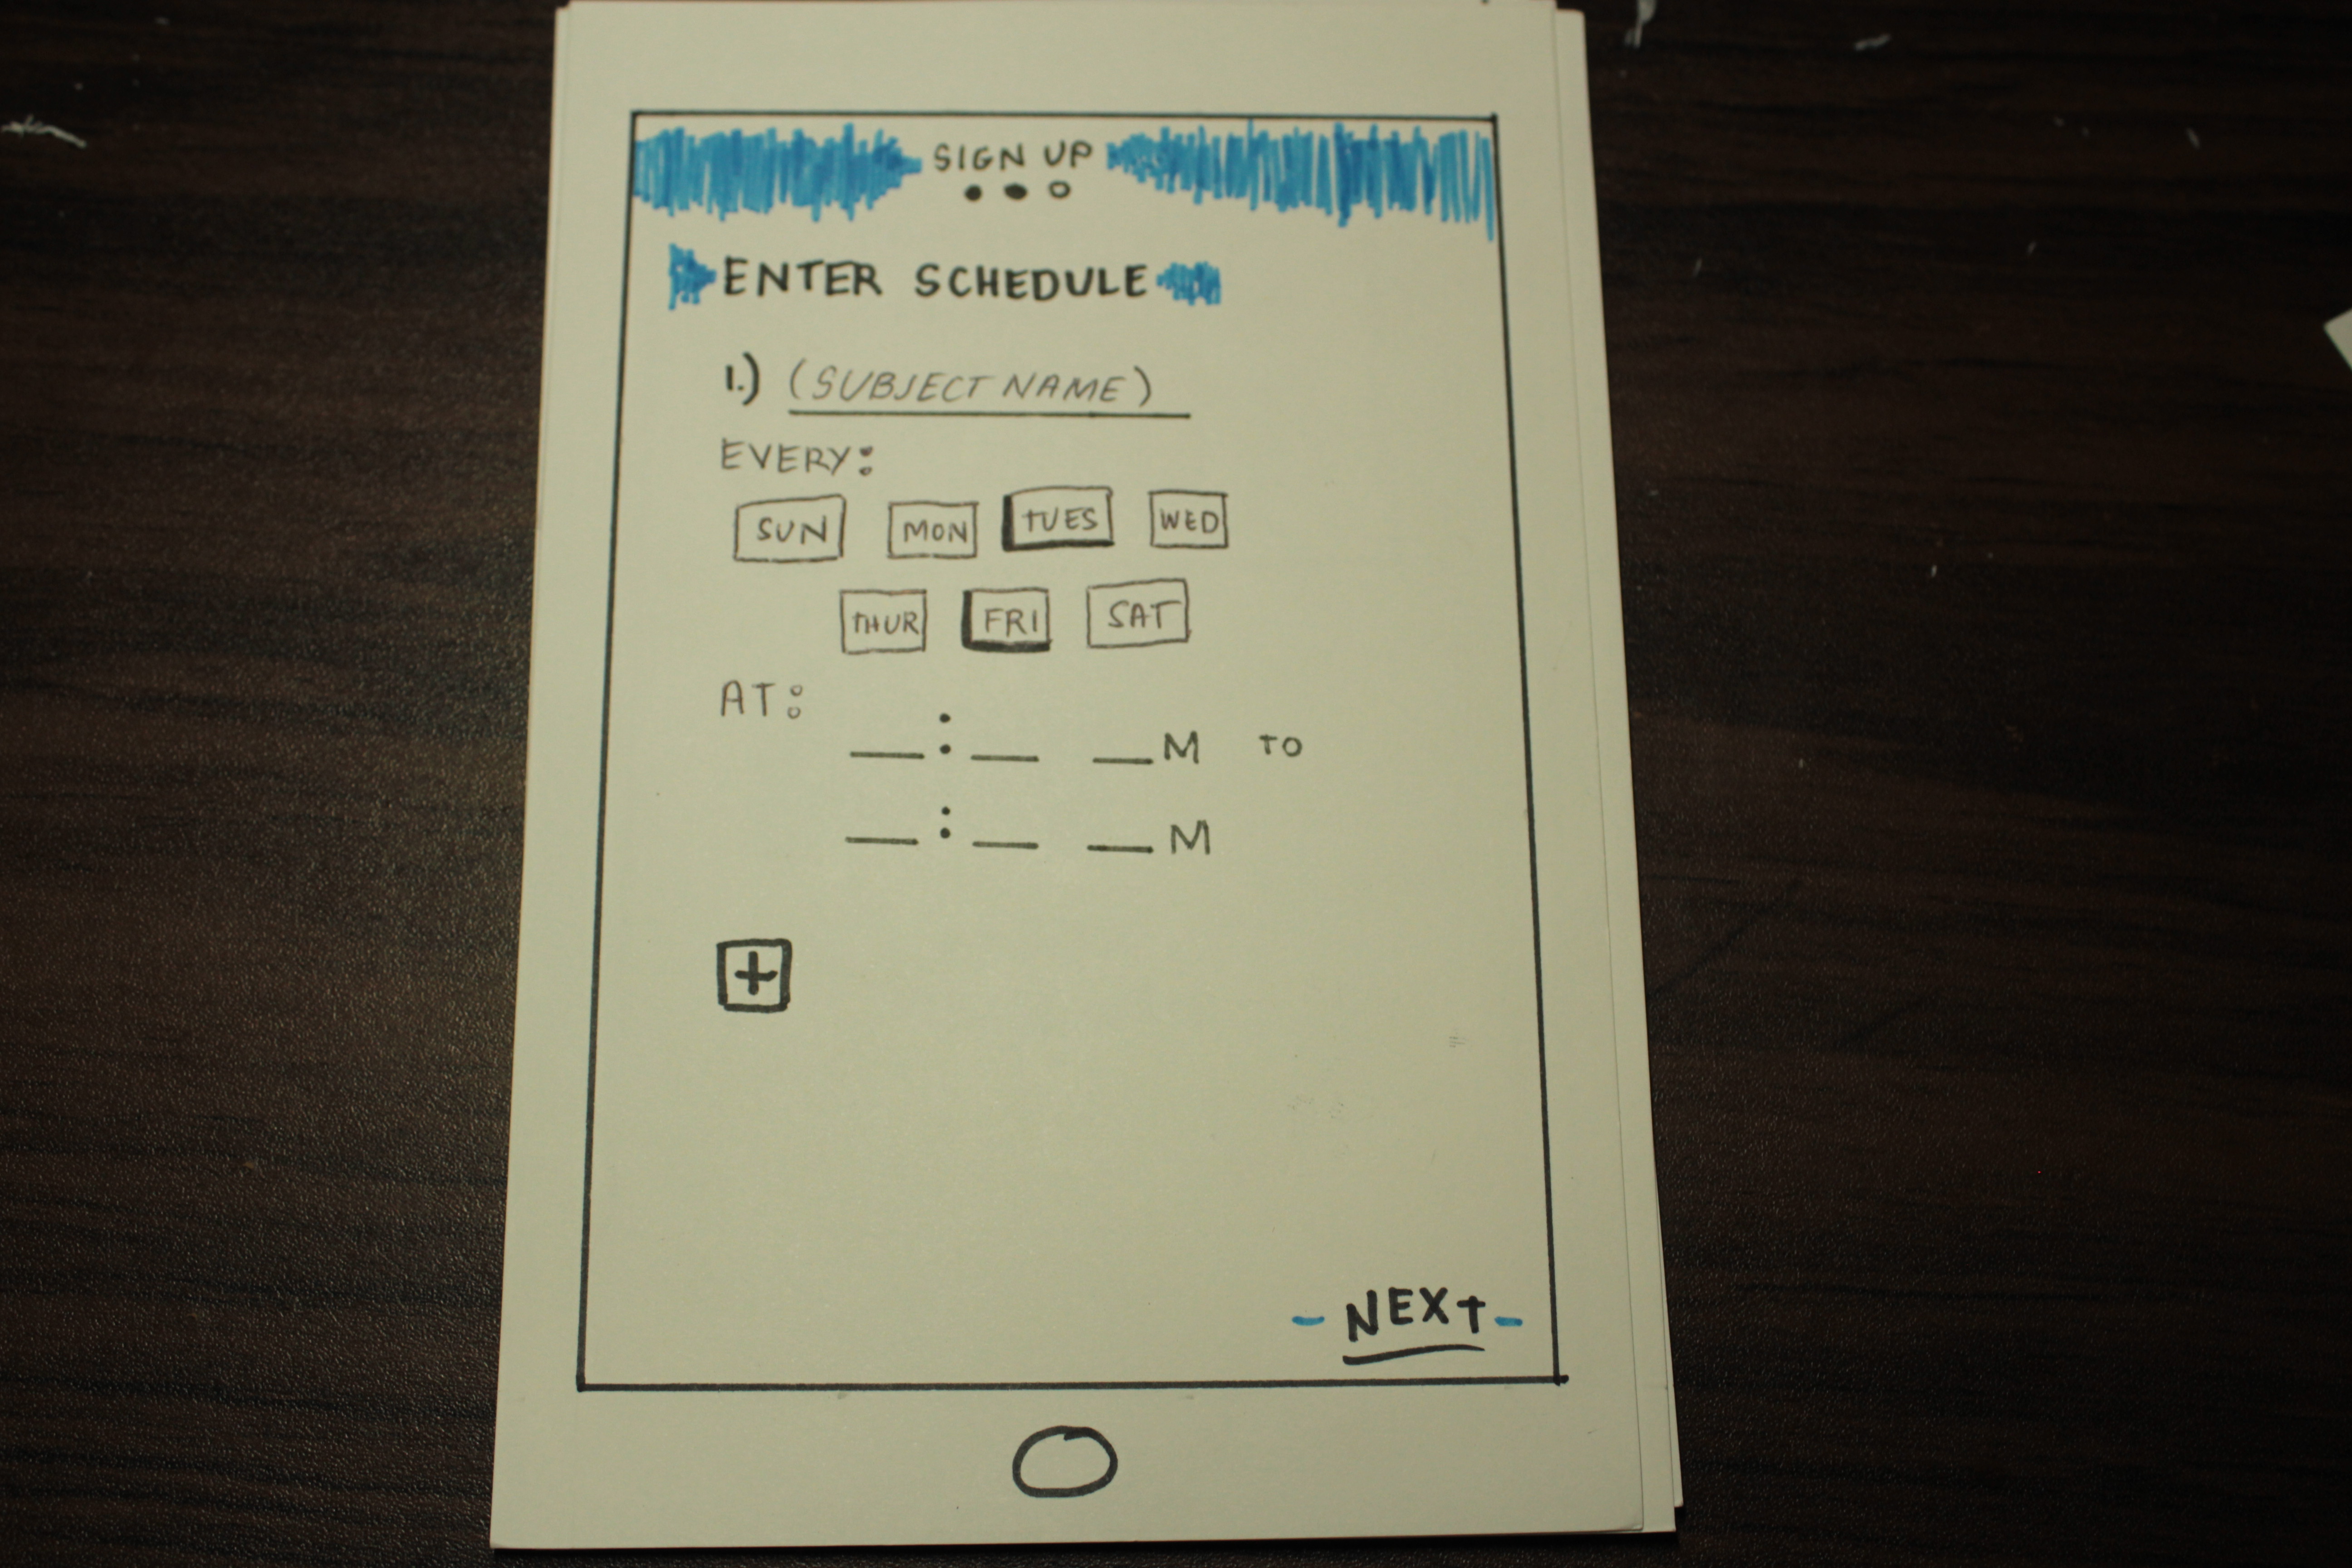 SIGN UP
ENTER SCHEDULE
1.) (SUBJECT NAME)
EVERY:
SUN MON TUES WED
THUR FRI SAT
AT:
__:__ __M TO
__:__ __M
+
- NEXT -